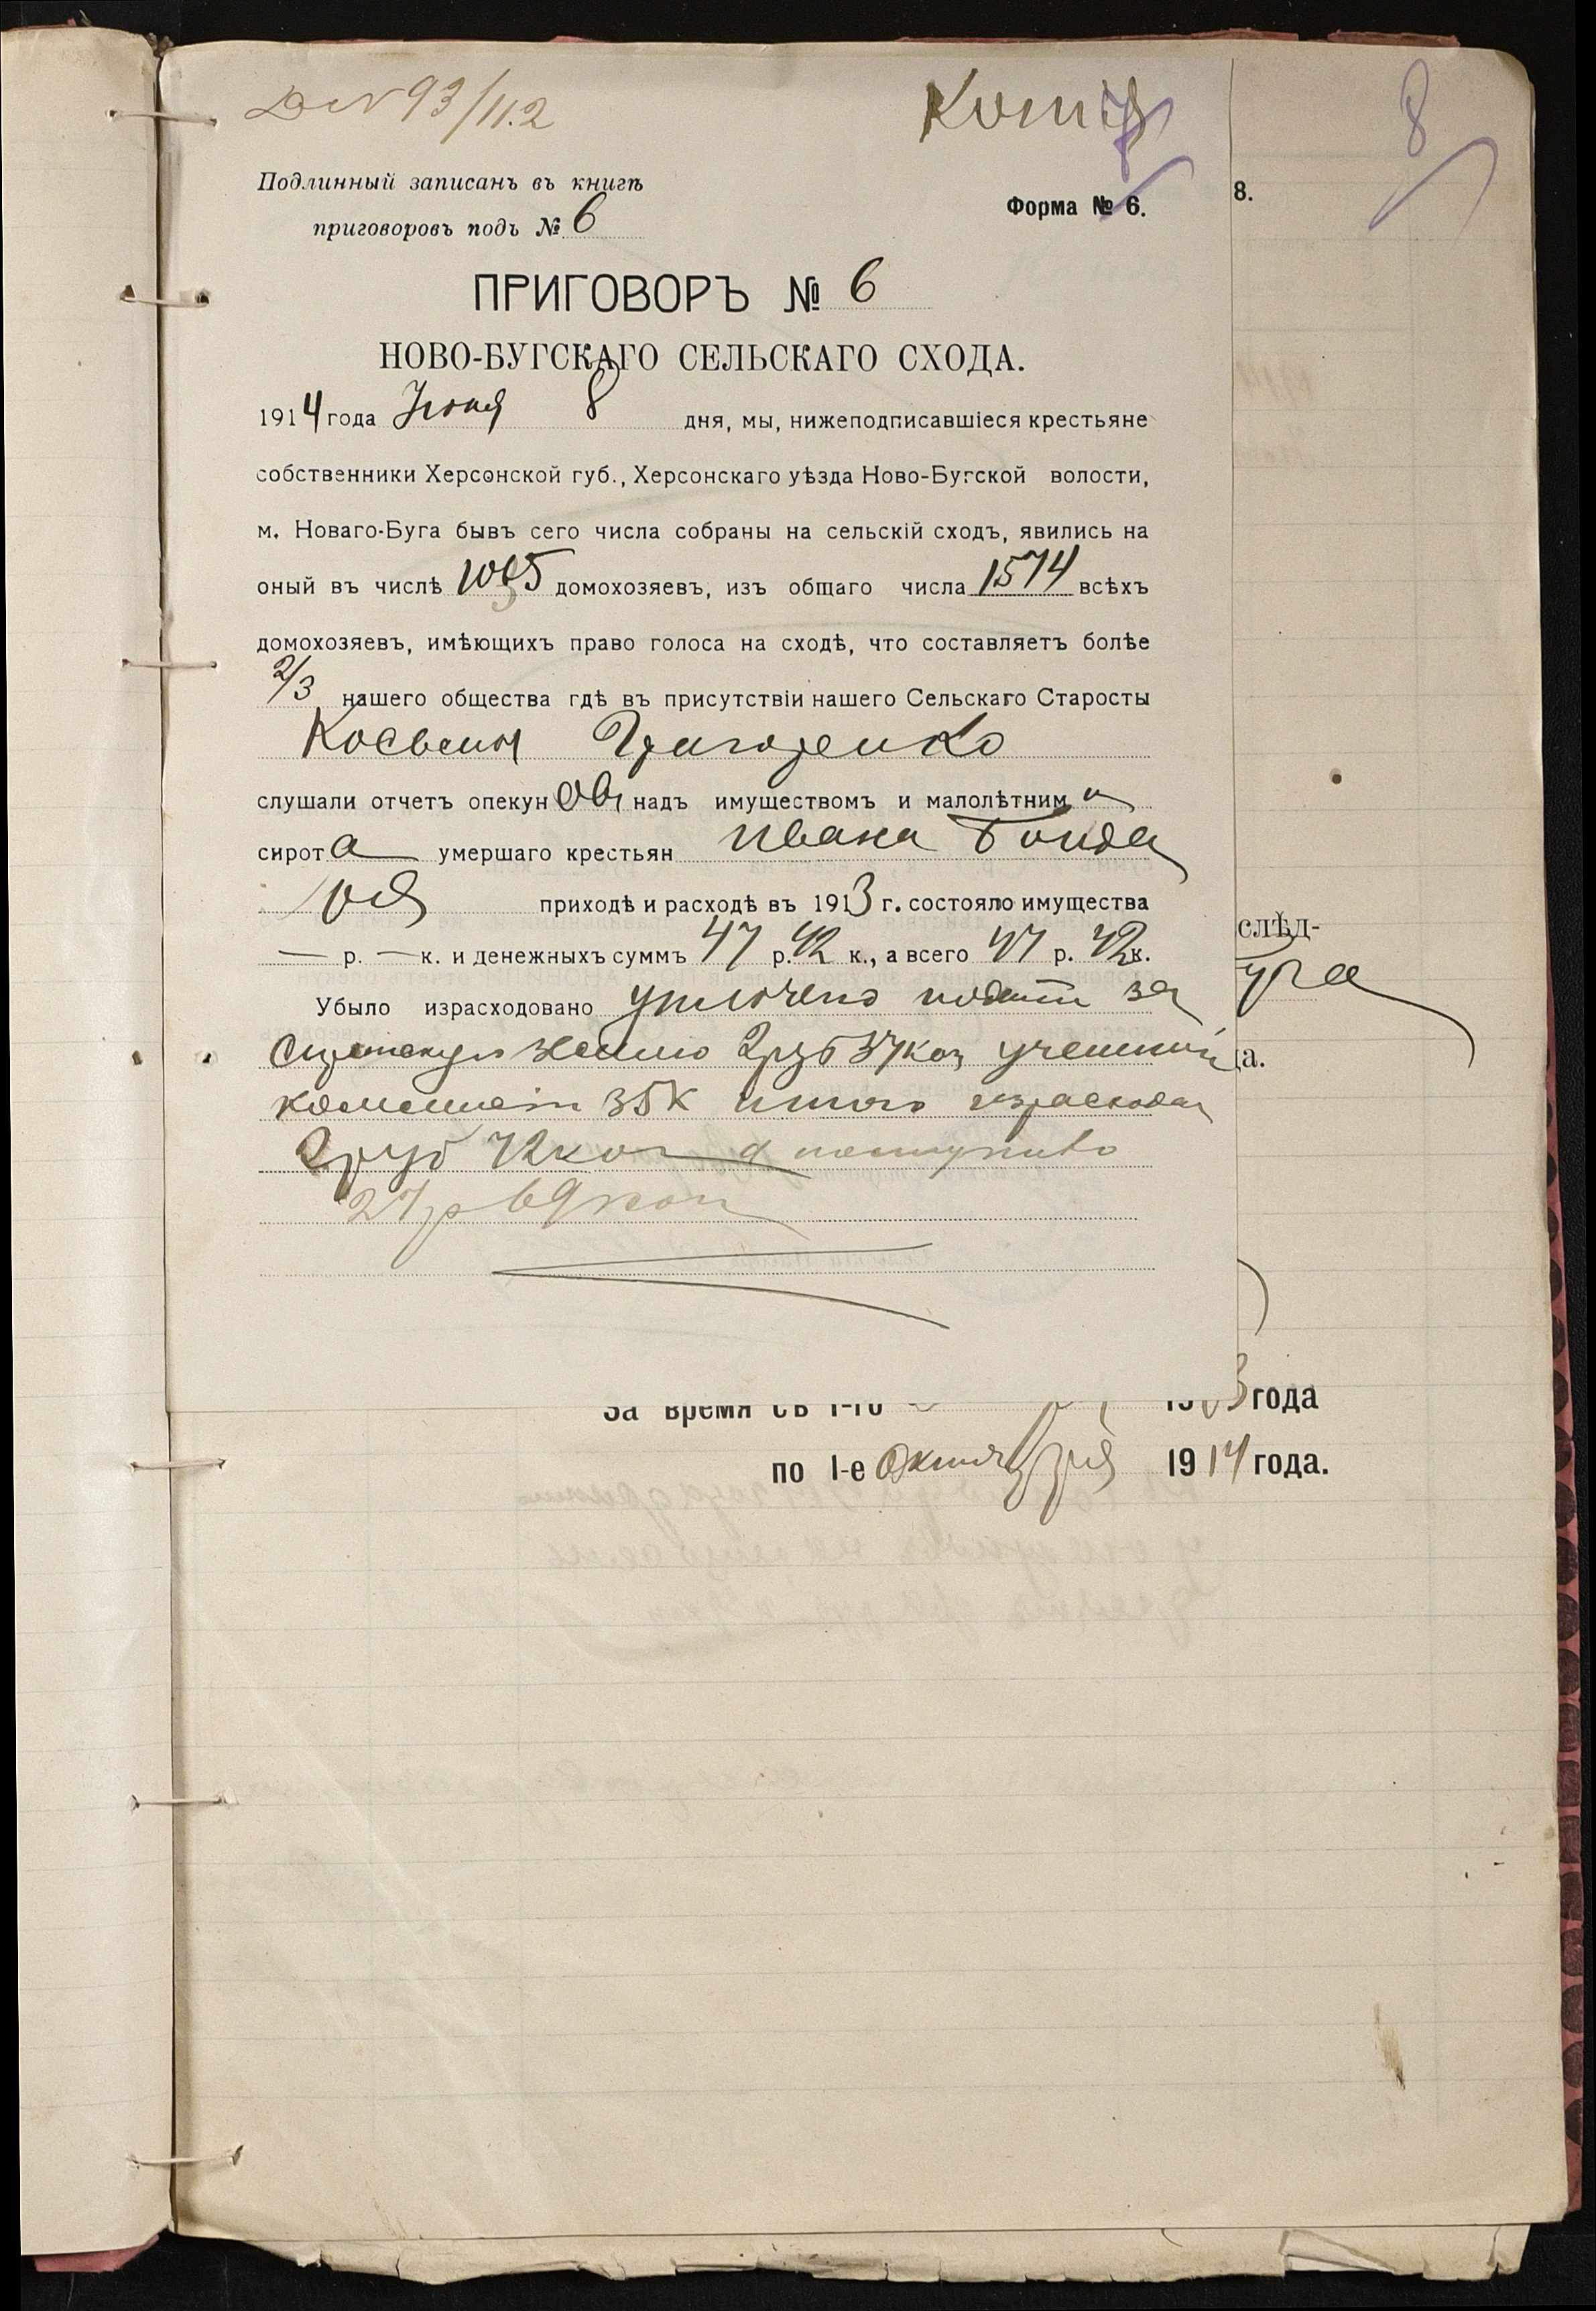 № 93/11.2
Копія
7
8
Подлинный записанъ въ книгѣ
приговоровъ подъ № 6
Форма № 6.
8.
ПРИГОВОРЪ № 6
НОВО-БУГСКАГО СЕЛЬСКАГО СХОДА.
1914 года Іюня 8 дня, мы, нижеподписавшіеся крестьяне
собственники Херсонской губ., Херсонскаго уѣзда Ново-Бугской волости,
м. Новаго-Буга бывъ сего числа собраны на сельскій сходъ, явились на
оный въ числѣ домохозяевъ, изъ общаго числа 1574 всѣхъ
домохозяевъ, имѣющихъ право голоса на сходѣ, что составляетъ болѣе
2/3 нашего общества гдѣ въ присутствіи нашего Сельскаго Старосты
Григоренко
слушали отчетъ опекуновъ надъ имуществомъ и малолѣтним
сирота умершаго крестьян Ивана Бонда
ря приходѣ и расходѣ въ 1913 г. состояло имущества
— р. — к. и денежныхъ суммъ 47 р. 42 к., а всего 47 р. 42 к.
Убыло израсходовано уплочено подати за
Сиротскую землю 2 руб 37 коп
35 к итого израсход
2 руб 72 коп а поступило
27 р 69 коп
слѣд-
уга
а.
За время съ 1-го 1913 года
по 1-е Октября 1914 года.